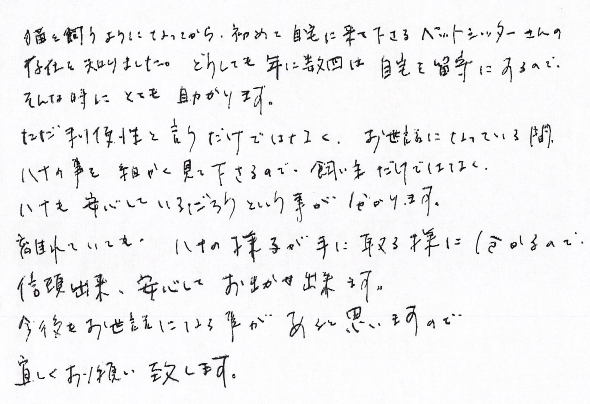 猫を飼うようになってから、初めて自宅に来て下さるペットシッターさんの
存在を知りました。どうしても年に数回は自宅を留守にするので、
そんな時にとても助かります。
ただ利便性と言うだけではなく、お世話になっている間、
ハナの事を細かく見て下さるので、飼い主だけではなく、
ハナも安心しているだろうという事が分かります。
離れていても、ハナの様子が手に取る様に分かるので、
信頼出来、安心してお任せ出来ます。
今後もお世話になる事があると思いますので
宜しくお願い致します。